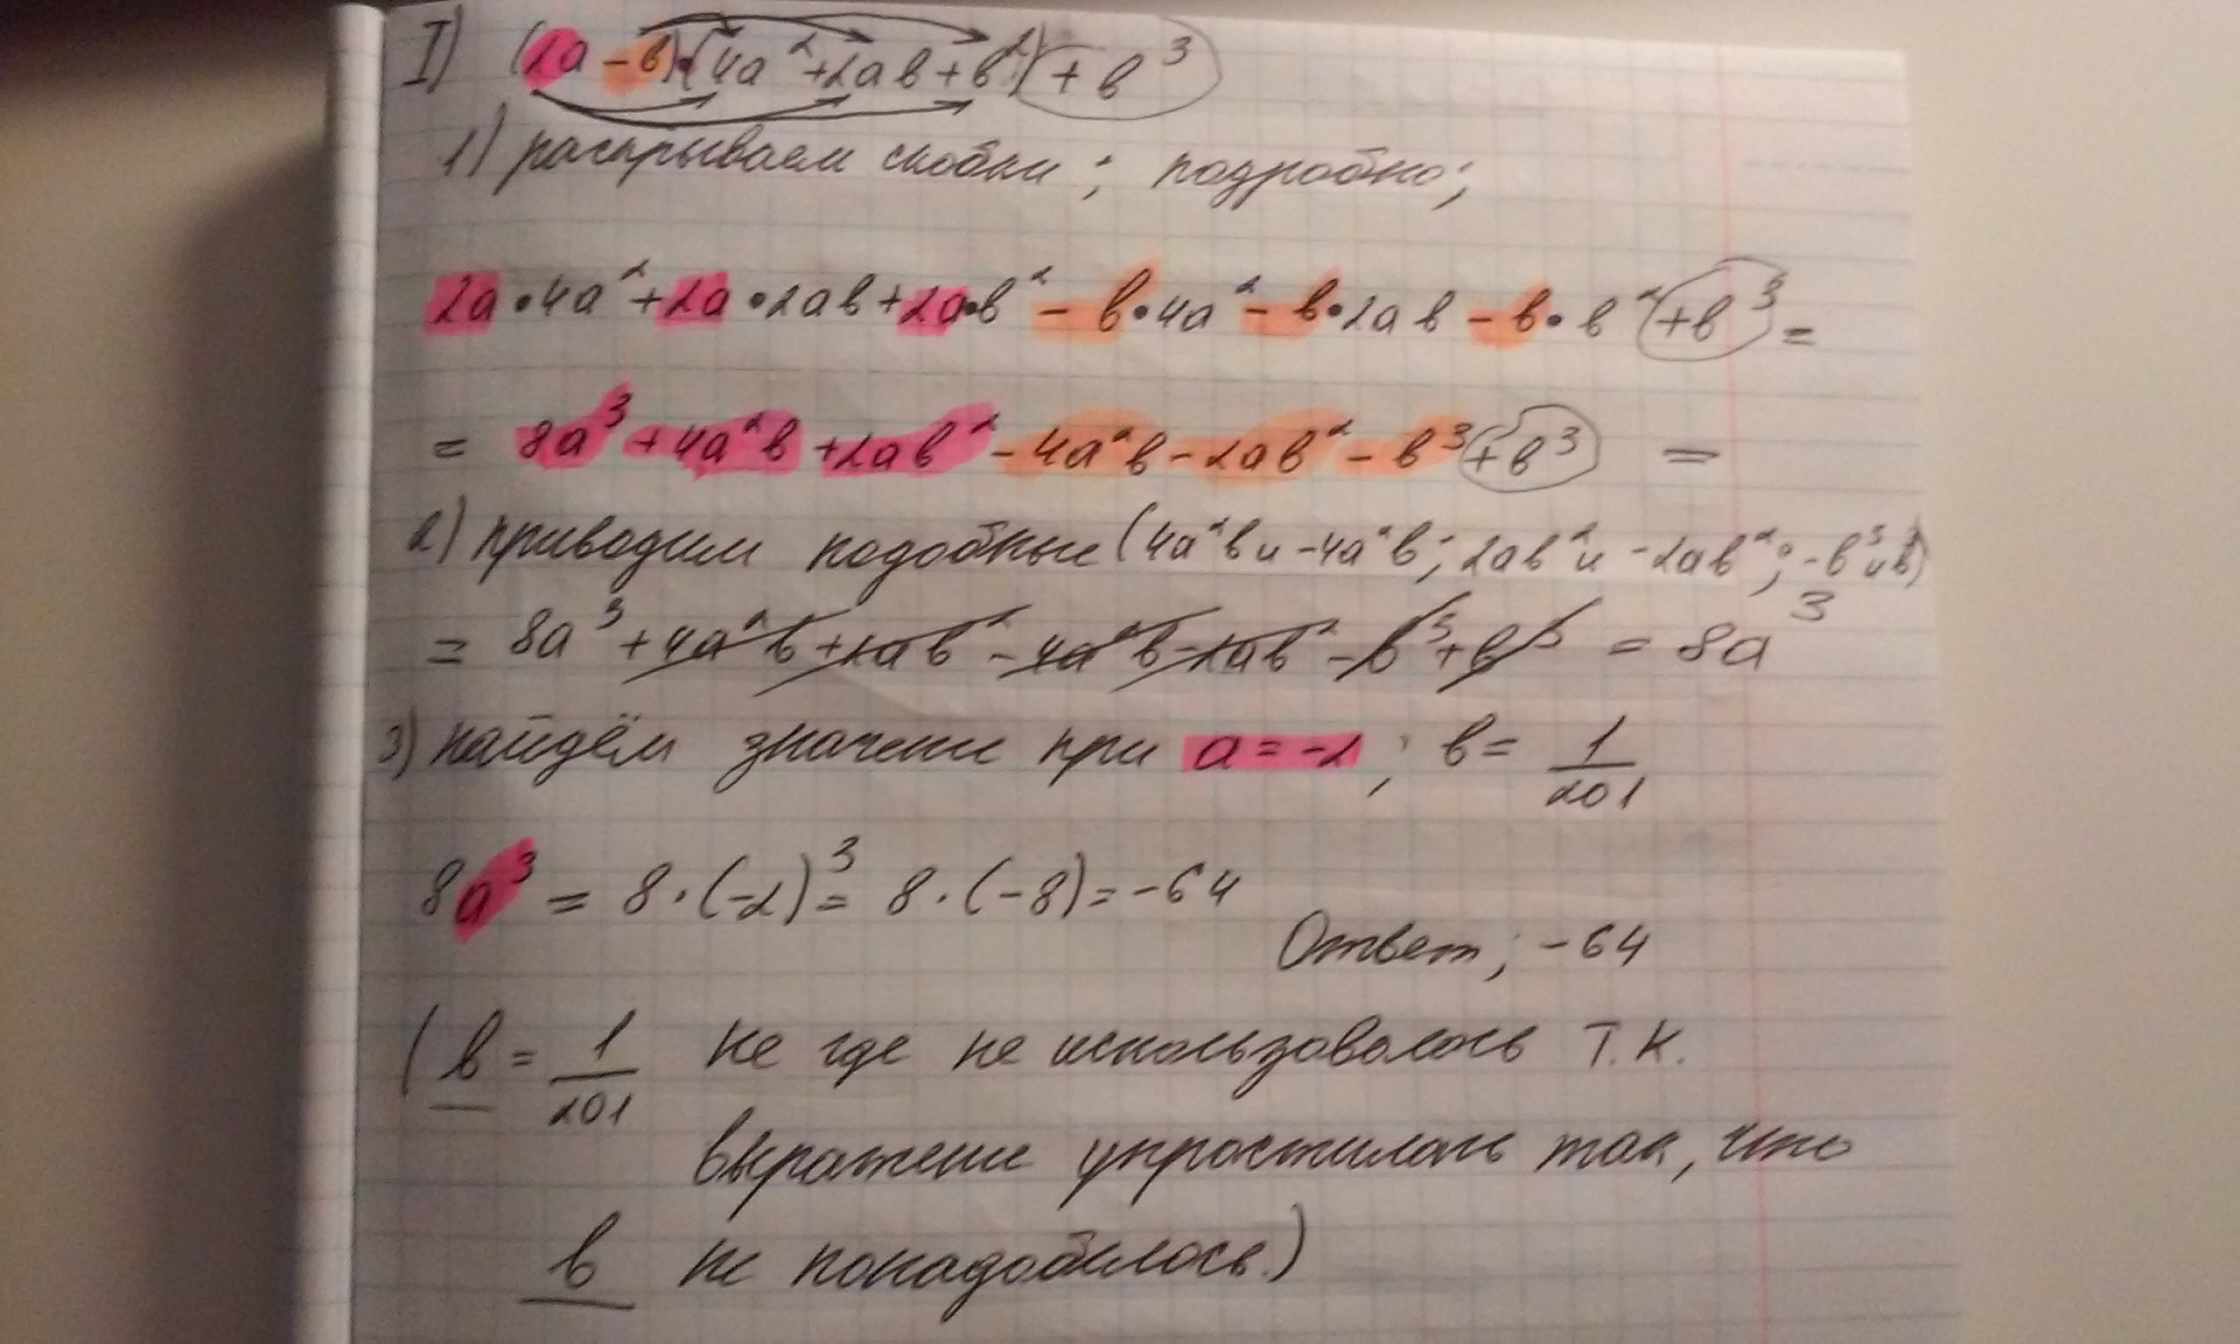 I) (2a-в)·(4a²+2ав+в²)+в³
1) раскрываем скобки; подробно;
2a·4a²+2a·2ав+2a·в²-в·4a²-в·2ав-в·в²+в³=
= 8a³+4a²в+2ав²-4a²в-2ав²-в³+в³ =
2) приводим подобные (4a²в и -4a²в; 2ав² и -2ав²; -в³ и в³)
= 8a³+4a²в+2ав²-4a²в-2ав²-в³+в³ = 8a³
3) найдём значение при a=-2; в= 1/201
8a³ = 8·(-2)³= 8·(-8)=-64
Ответ; -64
(в= 1/201 не где не использовалось т.к.
выражение упростилось так, что
в не понадобилось.)